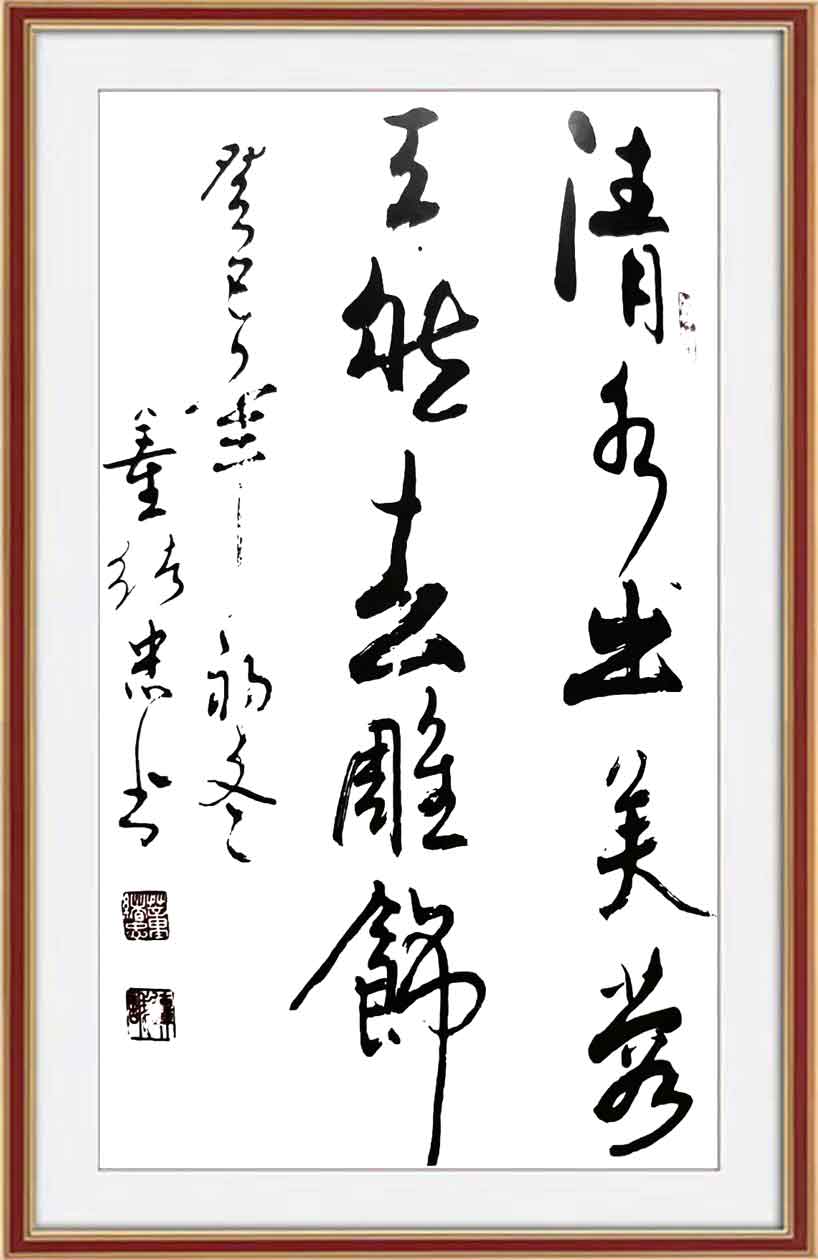 清水出芙蓉
天然去雕飾
癸巳年初冬
董忠书